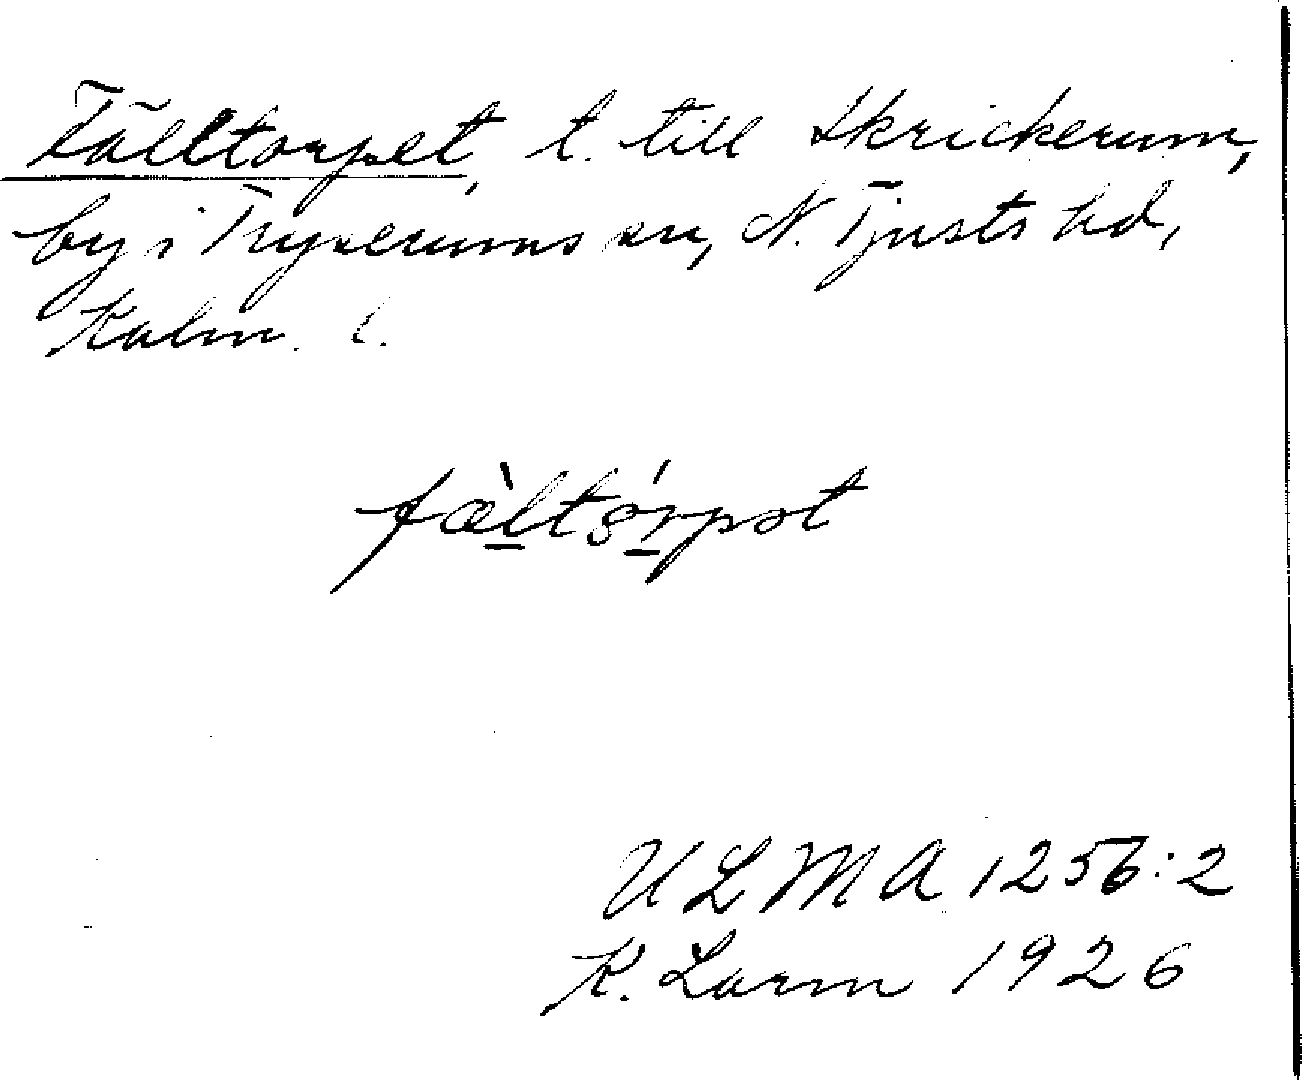 Fälltorpet, t. till Skrickerum,
by i Tryserums sn, N. Tjusts hd,
Kalm. l.
fæ̀ltórpət
ULMA 1256:2
K. Larm 1926